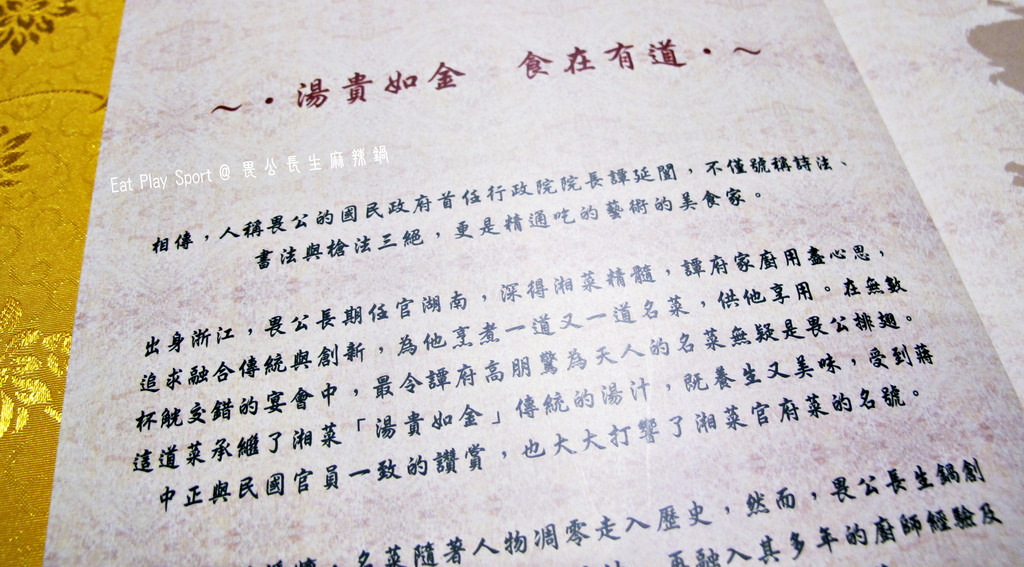 ～・湯貴如金　食在有道・～
Eat Play Sport @ 畏公長生麻辣鍋
相傳，人稱畏公的國民政府首任行政院院長譚延闓，不僅號稱詩法、
書法與槍法三絕，更是精通吃的藝術的美食家。
出身浙江，畏公長期任官湖南，深得湘菜精髓，譚府家廚用盡心思，
追求融合傳統與創新，為他烹煮一道又一道名菜，供他享用。在無數
杯觥交錯的宴會中，最令譚府高朋驚為天人的名菜無疑是畏公排翅。
這道菜承繼了湘菜「湯貴如金」傳統的湯汁，既養生又美味，受到蔣
中正與民國官員一致的讚賞，也大大打響了湘菜官府菜的名號。
名菜隨著人物凋零走入歷史，然而，畏公長生鍋創
再融入其多年的廚師經驗及